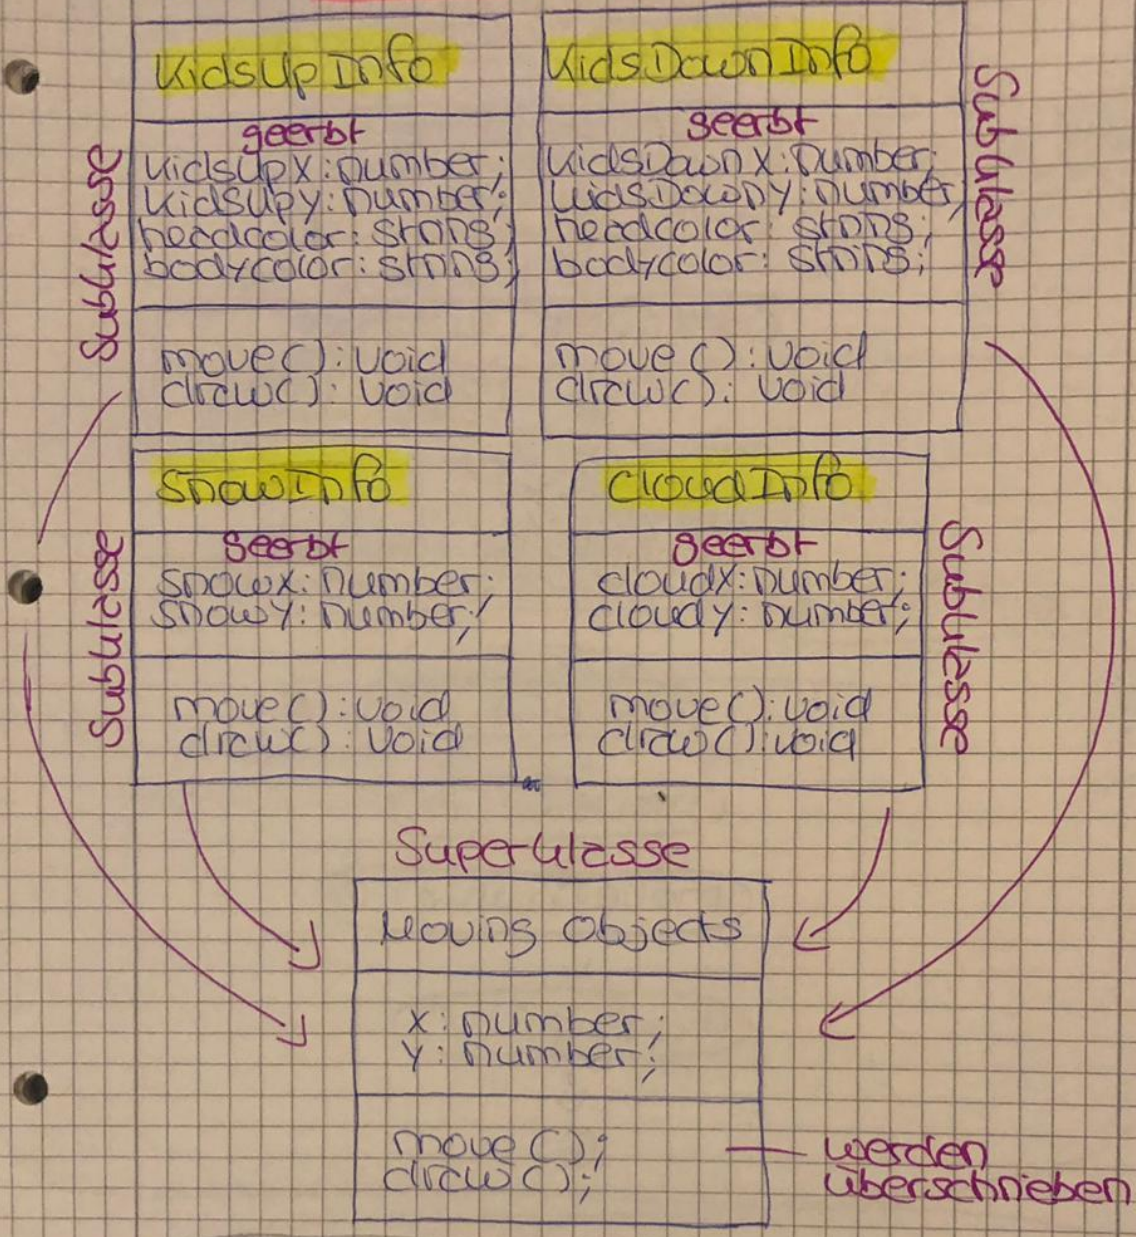 KidsUpInfo
geerbt
KidsUpX: number;
KidsUpy: number;
headcolor: string;
bodycolor: string;
move(): void
draw(): void
Subklasse
KidsDownInfo
geerbt
KidsDownX: number;
KidsDownY: number;
headcolor: string;
bodycolor: string;
move(): void
draw(): void
Subklasse
SnowInfo
geerbt
snowx: number;
snowy: number;
move(): void
draw(): void
Subklasse
CloudInfo
geerbt
cloudX: number;
cloudy: number;
move(): void
draw(): void
Subklasse
Superklasse
Moving Objects
X: number;
Y: number;
move();
draw();
werden
überschrieben